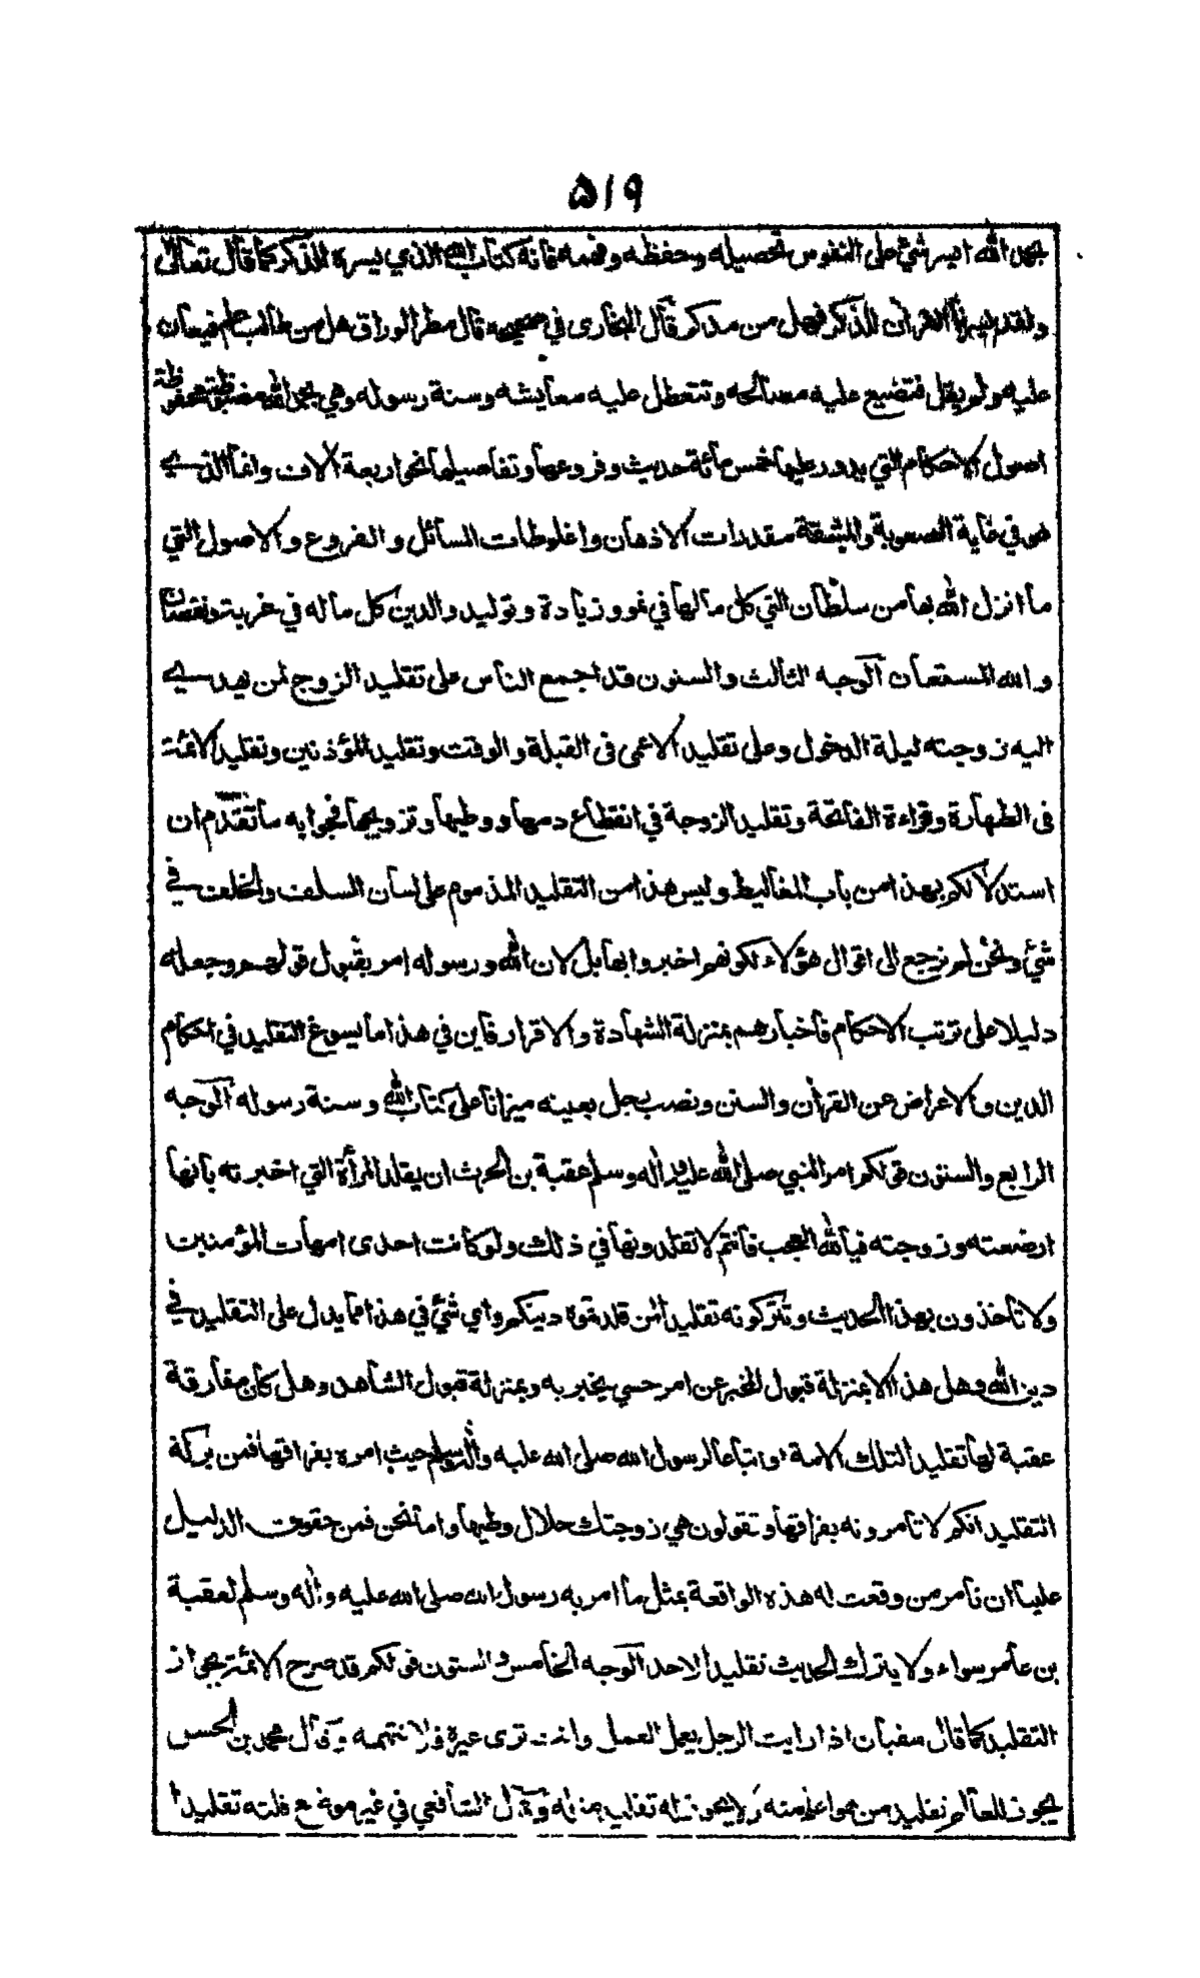 ٥١٩
بحمد الله ايسر شئ على النفوس تحصيله وحفظه وفهمه فانه كتاب الله الذي يسره للذكر كما قال تعالى
ولقد يسرنا القرأن للذكر فهل من مدكر قال البخاري في صحيحه قال مطر الوراق هل من طالب علم فيعان
عليه ولم يقل فتضيع عليه مصالحه وتتعطل عليه معايشه وسنة رسوله وهي بحمد الله مضبوطة محفوظة
اصول الاحكام التي يدور عليها خمس مائة حديث وفروعها وتفاصيلها نحو اربعة الاف وانما الذي
هو في غاية الصعوبة والمشقة مقدرات الاذهان واغلوطات المسائل والفروع والاصول التي
ما انزل الله بها من سلطان التي كل مالها في نمو وزيادة وتوليد والدين كل ماله في غربة ونقصان
والله المستعان الوجه الثالث والستون قد اجمع الناس على تقليد الزوج لمن يهدي
اليه زوجته ليلة الدخول وعلى تقليد الاعمى في القبلة والوقت وتقليد المؤذنين وتقليد الائمة
في الطهارة وقراءة الفاتحة وتقليد الزوجة في انقطاع دمها ووطيها وتزويجها فجوابه ما تقدم ان
استدلالكم بهذا من باب المغاليط وليس هذا من التقليد المذموم على لسان السلف والخلف في
شئ ونحن لم نرجع الى اقوال هؤلاء لكونهم اخبروا بها بل لان الله ورسوله امر بقبول قولهم وجعله
دليلا على ترتب الاحكام فاخبارهم بمنزلة الشهادة والاقرار فاين في هذا ما يسوغ التقليد في احكام
الدين والاعراض عن القرأن والسنن ونصب رجل بعينه ميزانا على كتاب الله وسنة رسوله الوجه
الرابع والستون قولكم امر النبي صلى الله عليه واله وسلم عقبة بن الحرث ان يقلد المرأة التي اخبرته بانها
ارضعته وزوجته فيا لله العجب فانتم لا تقلدونها في ذلك ولو كانت احدى امهات المؤمنين
ولا تأخذون بهذا الحديث وتتركونه تقليدا لمن قلدتموه دينكم واي شئ في هذا مما يدل على التقليد في
دين الله وهل هذا الا بمنزلة قبول المخبر عن امر حسي يخبر به وبمنزلة قبول الشاهد وهل كان مفارقة
عقبة لها تقليدا لتلك الامة او اتباعا لرسول الله صلى الله عليه واله وسلم حيث امره بفراقها فمن بركة
التقليد انكم لا تأمرونه بفراقها وتقولون هي زوجتك حلال وطيها واما نحن فمن حقوق الدليل
علينا ان نأمر من وقعت له هذه الواقعة بمثل ما امر به رسول الله صلى الله عليه وأله وسلم لعقبة
بن عامر سواء ولا يترك الحديث تقليدا لاحد الوجه الخامس والستون قولكم قد صرح الائمة بجواز
التقليد كما قال سفيان اذا رايت الرجل يعمل العمل وانت ترى غيره فلا تتهمه وقال محمد بن الحسن
يجوز للعالم تقليد من هو اعلم منه ولا يجوز له تقليد مثله وقال الشافعي في غير موضع قلته تقليدا